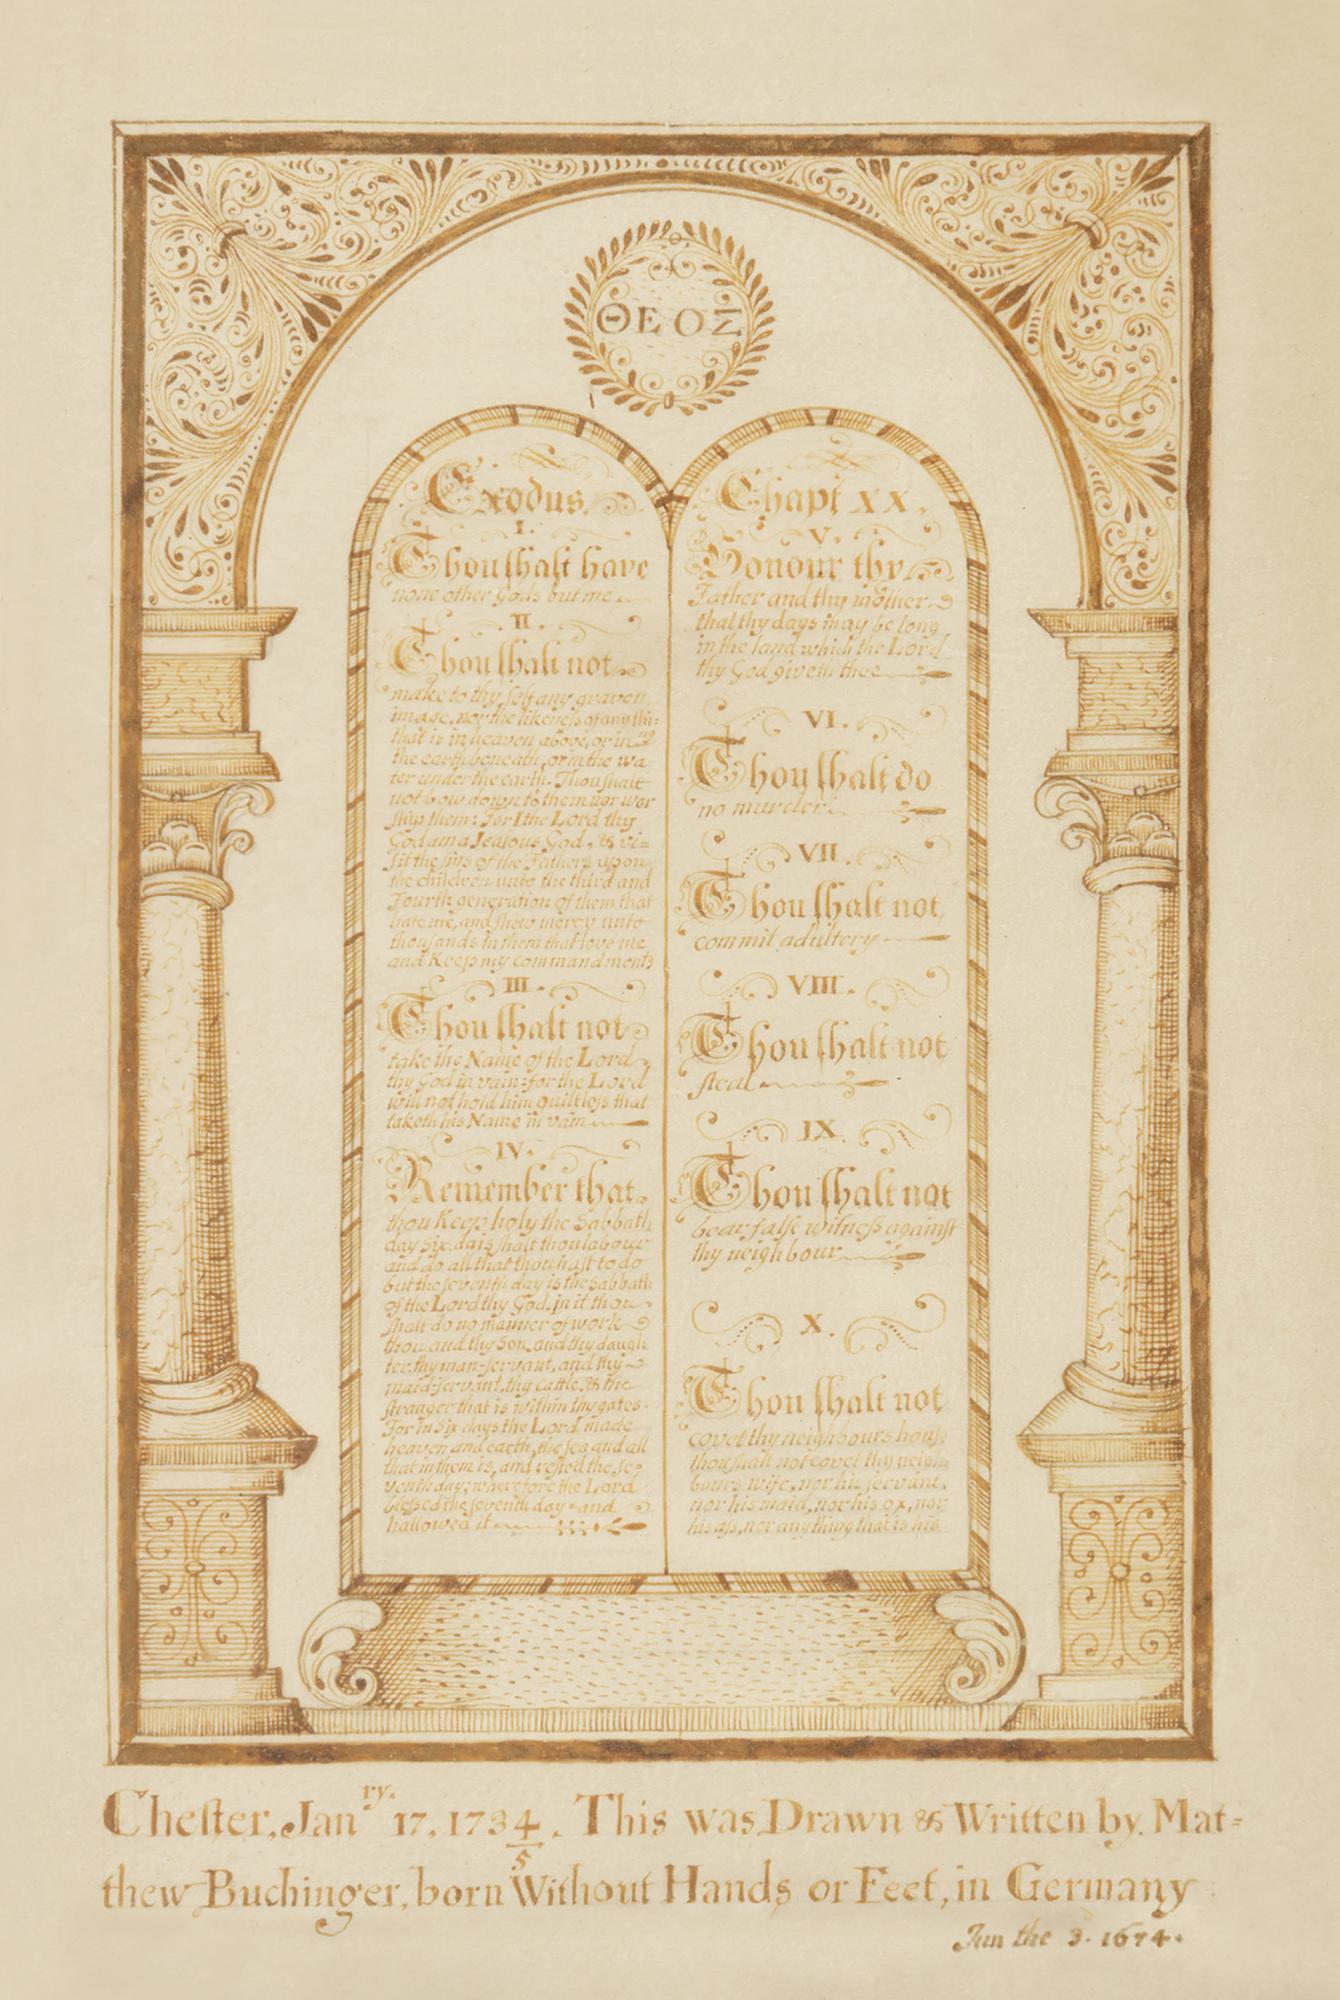 ΘΕΟΣ
Exodus.
I.
Thou shalt have
none other Gods but me
II.
Thou shalt not
make to thy self any graven
image, nor the likeness of any thi=
ng
that is in heaven above, or in
the earth beneath, or in the wa
ter under the earth. Thou shalt
not bow down to them nor wor
ship them: For I the Lord thy
God am a Jealous God, & vi=
sit the sins of the Fathers upon
the children unto the third and
Fourth generation of them that
hate me, and shew mercy unto
thousands in them that love me
and Keep my commandments
III.
Thou shalt not
take the Name of the Lord
thy God in vain: for the Lord
will not hold him guiltless that
taketh his Name in vain
IV.
Remember that
thou Keep holy the Sabbath
day Six dais shalt thou labour
and do all that thou hast to do
but the seventh day is the Sabbath
of the Lord thy God. in it thou
shalt do no manner of work
thou and thy Son, and thy daugh
ter, thy man-servant, and thy
maid-servant, thy Cattle, & the
stranger that is within thy gates.
For in Six days the Lord made
heaven and earth, the sea and all
that in them is, and rested the se=
venth day; wherefore the Lord
blessed the seventh day and
hallowed it
Chapt XX.
V.
Honour thy
Father and thy mother
that thy days may be long
in the land which the Lord
thy God giveth thee
VI.
Thou shalt do
no murder
VII.
Thou shalt not
commit adultery
VIII.
Thou shalt not
steal
IX.
Thou shalt not
bear false witness against
thy neighbour
X.
Thou shalt not
covet thy neighbours house
thou shalt not covet thy neigh
bours wife, nor his servant,
nor his maid, nor his ox, nor
his ass, nor any thing that is his
Chester, Janry. 17, 1734/5. This was Drawn & Written by Mat=
thew Buchinger, born Without Hands or Feet, in Germany
Jun the 3. 1674.